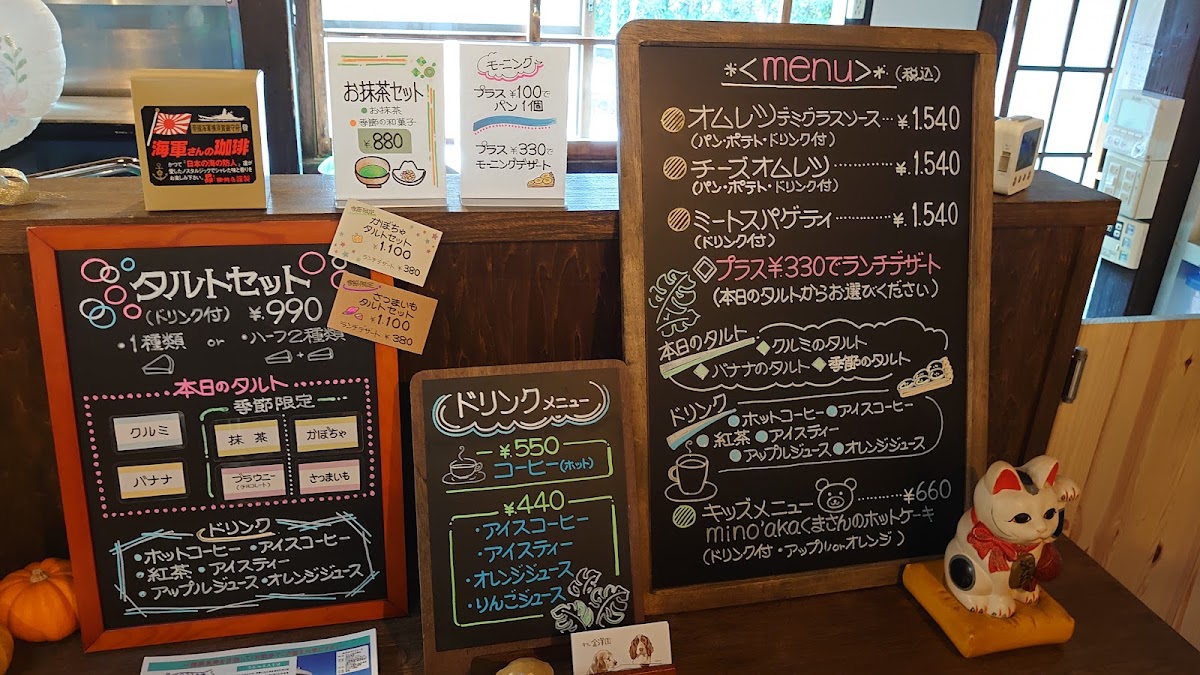 海軍さんの珈琲
かつて"日本の海の防人"達が
愛したノスタルジックでシャレた味と香りを
お楽しみ下さい。
お抹茶セット
•お抹茶
•季節の和菓子
¥880
モーニング
プラス¥100で
パン1個
プラス¥330で
モーニングデザート
季節限定
かぼちゃ
タルトセット
¥1.100
ランチデザート ¥380
季節限定
さつまいも
タルトセット
¥1.100
ランチデザート ¥380
タルトセット
(ドリンク付) ¥990
・1種類 or ・ハーフ2種類
本日のタルト
季節限定
クルミ
抹茶
かぼちゃ
バナナ
ブラウニー
(チョコレート)
さつまいも
ドリンク
・ホットコーヒー ・アイスコーヒー
・紅茶 ・アイスティー
・アップルジュース ・オレンジジュース
ドリンクメニュー
¥550
コーヒー(ホット)
¥440
・アイスコーヒー
・アイスティー
・オレンジジュース
・りんごジュース
*<menu>* (税込)
オムレツデミグラスソース…¥.1.540
(パン・ポテト・ドリンク付)
チーズオムレツ…………¥.1.540
(パン・ポテト・ドリンク付)
ミートスパゲティ…………¥.1.540
(ドリンク付)
◇プラス¥330でランチデザート
(本日のタルトからお選びください)
本日のタルト
◆クルミのタルト
◆バナナのタルト ◆季節のタルト
ドリンク
●ホットコーヒー ●アイスコーヒー
●紅茶 ●アイスティー
●アップルジュース ●オレンジジュース
キッズメニュー………¥660
mino'akaくまさんのホットケーキ
(ドリンク付・アップルorオレンジ)